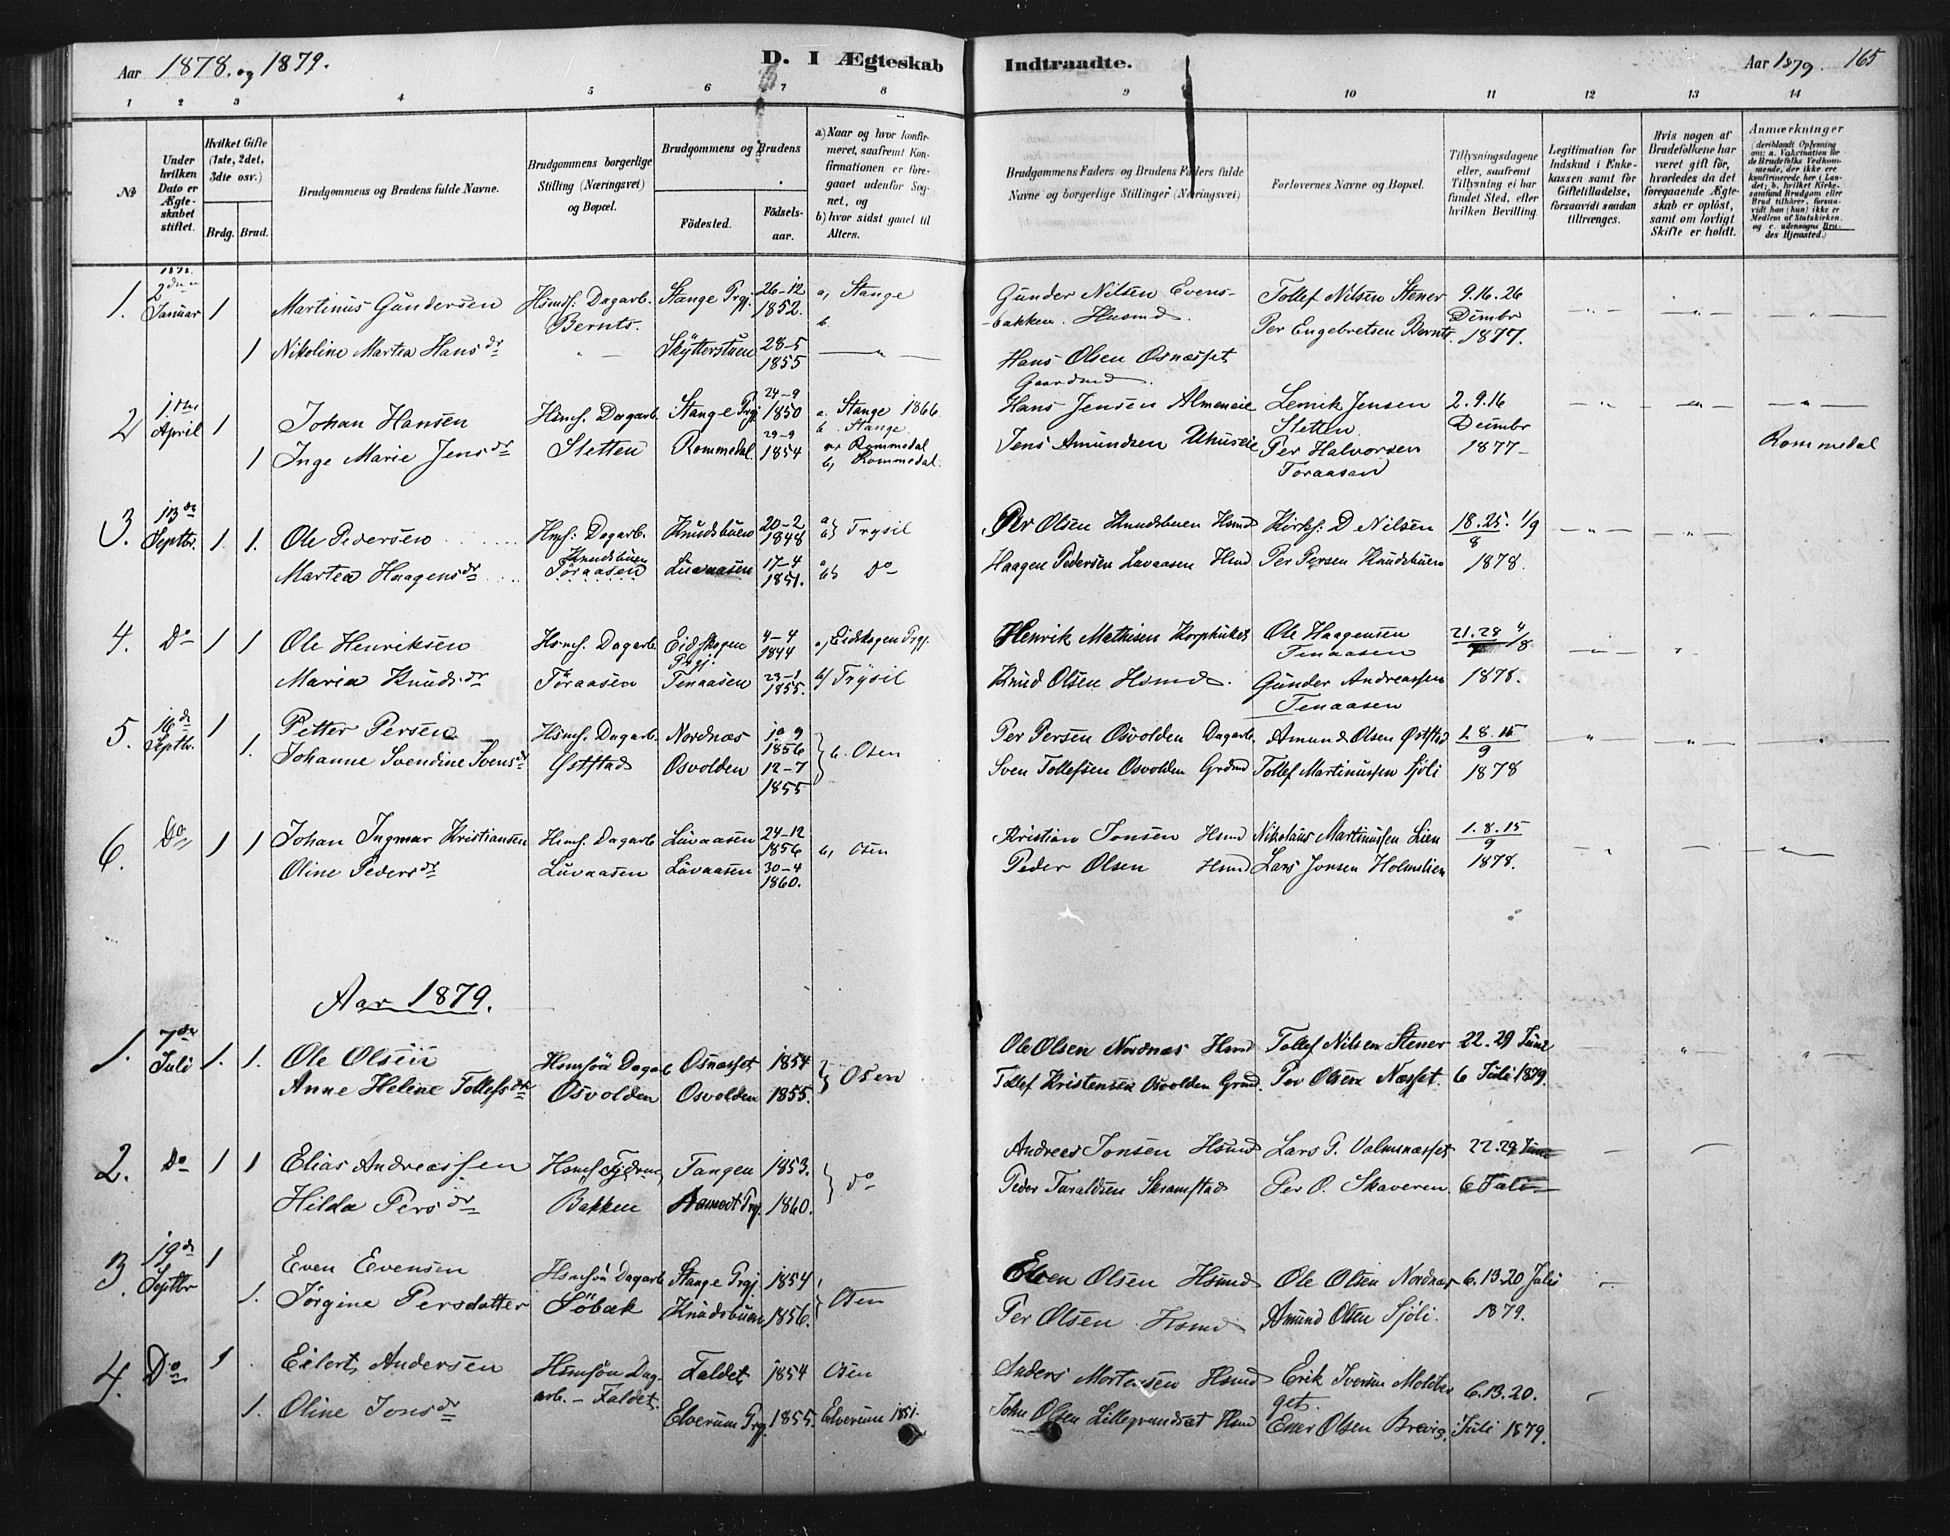 Aar 1878. og 1879.
D. I Ægteskab Indtraadte.
Aar 1879. 165
1 2 3 4 5 6 7 8 9 10 11 12 13 14
No
Under hvilken Dato er Ægteskabet stiftet.
Hvilket Gifte (1ste, 2det, 3die osv.)
Brdg. Brud.
Brudgommens og Brudens fulde Navne.
Brudgommens borgerlige Stilling (Næringsvei) og Bopæl.
Brudgommens og Brudens
Födested.
Födselsaar.
a) Naar og hvor konfirmeret, saafremt Konfirmationen er foregaaet udenfor Sognet, og
b) hvor sidst gaaet til Alters.
Brudgommens Faders og Brudens Faders fulde Navne og borgerlige Stillinger (Næringsvei)
Forlovernes Navne og Bopæl.
Tillysningsdagene eller, saafremt Tillysning ei har fundet Sted, efter hvilken Bevilling.
Legitimation for Indskud i Enkekassen samt for Giftetilladelse, forsaavidt saadan tiltrænges.
Hvis nogen af Brudefolkene har været gift för, hvorledes da det foregaaende Ægteskab er oplöst, samt om lovligt Skifte er holdt.
Anmærkninger (deriblandt Oplysning om: a. Vakcination for de Brudefolks Vedkommende, der ikke ere konfirmerede her i Landet; b. hvilket Kirkesamfund Brudgom eller Brud tilhörer, forsaavidt han (hun) ikke er Medlem af Statskirken. og c. udensogns Brudes Hjemsted.)
1. 1878. 2den Januar 1 Martinus Gundersen Hsmsf: Dagarb. Stange Prgj. 26-12 1852. a, Stange Gunder Nilsen Evens- Tollef Nilsen Stener 9.16.26
Bernts. b. bakken. Husmd. Per Engebretsen Bernts. Dcmbr
1 Nikoline Martea Hansdr Skÿtterstuen 28-5 1855 Hans Olsen Osnæsset 1877.
Gaardmd.
2 1ste April 1 Johan Hansen Hsmsf. Dagarb. Stange Prgj 24-9 1850 a. Stange 1866. Hans Jensen Almeneie Lemik Jensen 2.9.16
b. Stange. Sletten Dcmbr
1 Inge Marie Jensdr Sletten Rommedal. 29-9 1854 a, Rommedal Jens Amundsen Per Halvorsen 1877- Rommedal
b, Rommedal. Toraasen
3. 13de Septbr. 1 1. Ole Pedersen Hsmsf: Dagarb. Knudsbuen 20-2 1848 a b} Trysil Per Olsen Knudsbuen Hsmd Kirks: D Nilsen 18.25. 1/9
Knudsbuen 8
Martea Haagensdr Töraasen Luvaasen 17-4 1851. a b} Do Haagen Pedersen Luvaasen Hsmd Per Persen Knudsbuen 1878.
4. Do 1 1 Ole Henriksen Hsmsf. Dagarb Eidskogen Prgj. 4-4 1844 a, Eidskogen Prgj. Henrik Mathisen Ole Haagensen 21.28 4/8
Tenaasen
Maria Knudsdr Töraasen Tenaasen 23-1 1855. b, Trÿsil Knud Olsen Hsmd. Gunder Andreassen 1878.
Tenaasen
5. 16de Septbr. 1 Petter Persen Hsmsf. Dagarb. Nordnæs 10 9 1856 b. Osen Per Persen Osvolden Dagarb. Amund Olsen Östsfad 1.8.15
9
1. Johanne Svendine Svensdr Östsfad Osvolden 12-7 1855 Sven Tollefsen Osvolden Grdmd Tollef Martinussen Sjöli 1878
6. Do 1 1 Johan Ingmar Kristiansen Hsmsf. Dagarb Luvaasen 24-12 1856 b, Osen Kristian Jonsen Hsmd Nikolaus Martinussen Lien 1.8.15
9
Oline Pedersdr Luvaasen Luvaasen 30-4 1860. Peder Olsen Hsmd Lars Jonsen Holmslien 1878.
Aar 1879.
1. 7de Juli 1. 1. Ole Olsen Hsmsön Dagarb Osnæsset 1854 } Osen Ole Olsen Nordnæs Hsmd Tollef Nilsen Stener 22.29 Juni
Anne Helene Tollefsdr Osvolden Osvolden 1855. Tollef Kristensen Osvolden Grmd. Per Olsen Næsset. 6 Juli 1879.
2. Do 1 1 Elias Andreassen Tangen 1853. } do Andreas Jonsen Hsmd Lars P. Valmsnæsset 22.29 Juni
Hilda Persdr Bakken Aamodt Prgj. 1860. Peder Taraldsen Skramstad Per O. Skaveren 6 Juli
3. 19de Septbr 1 Even Evensen Hsmsön Dagarb Stange Prgj. 1854 } Osen Even Olsen Hsmd Ole Olsen Nordnæs 6.13.20 Juli
1. Jörgine Persdatter Söbæk Knudsbuen 1856. Per Olsen Hsmd Amund Olsen Sjöli. 1879.
4. Do 1 Eilert Andersen Hsmsön Dag- Faldet 1854 Osen Anders Mortensen Hsmd Erik Iversen 6.13.20.
arb. – Faldet. get.
1. Oline Jonsdr Elverum Prgj. 1855. Elverum 1851. John Olsen Lillegrundset Hsmd Ener Olsen Brevig. Juli 1879.